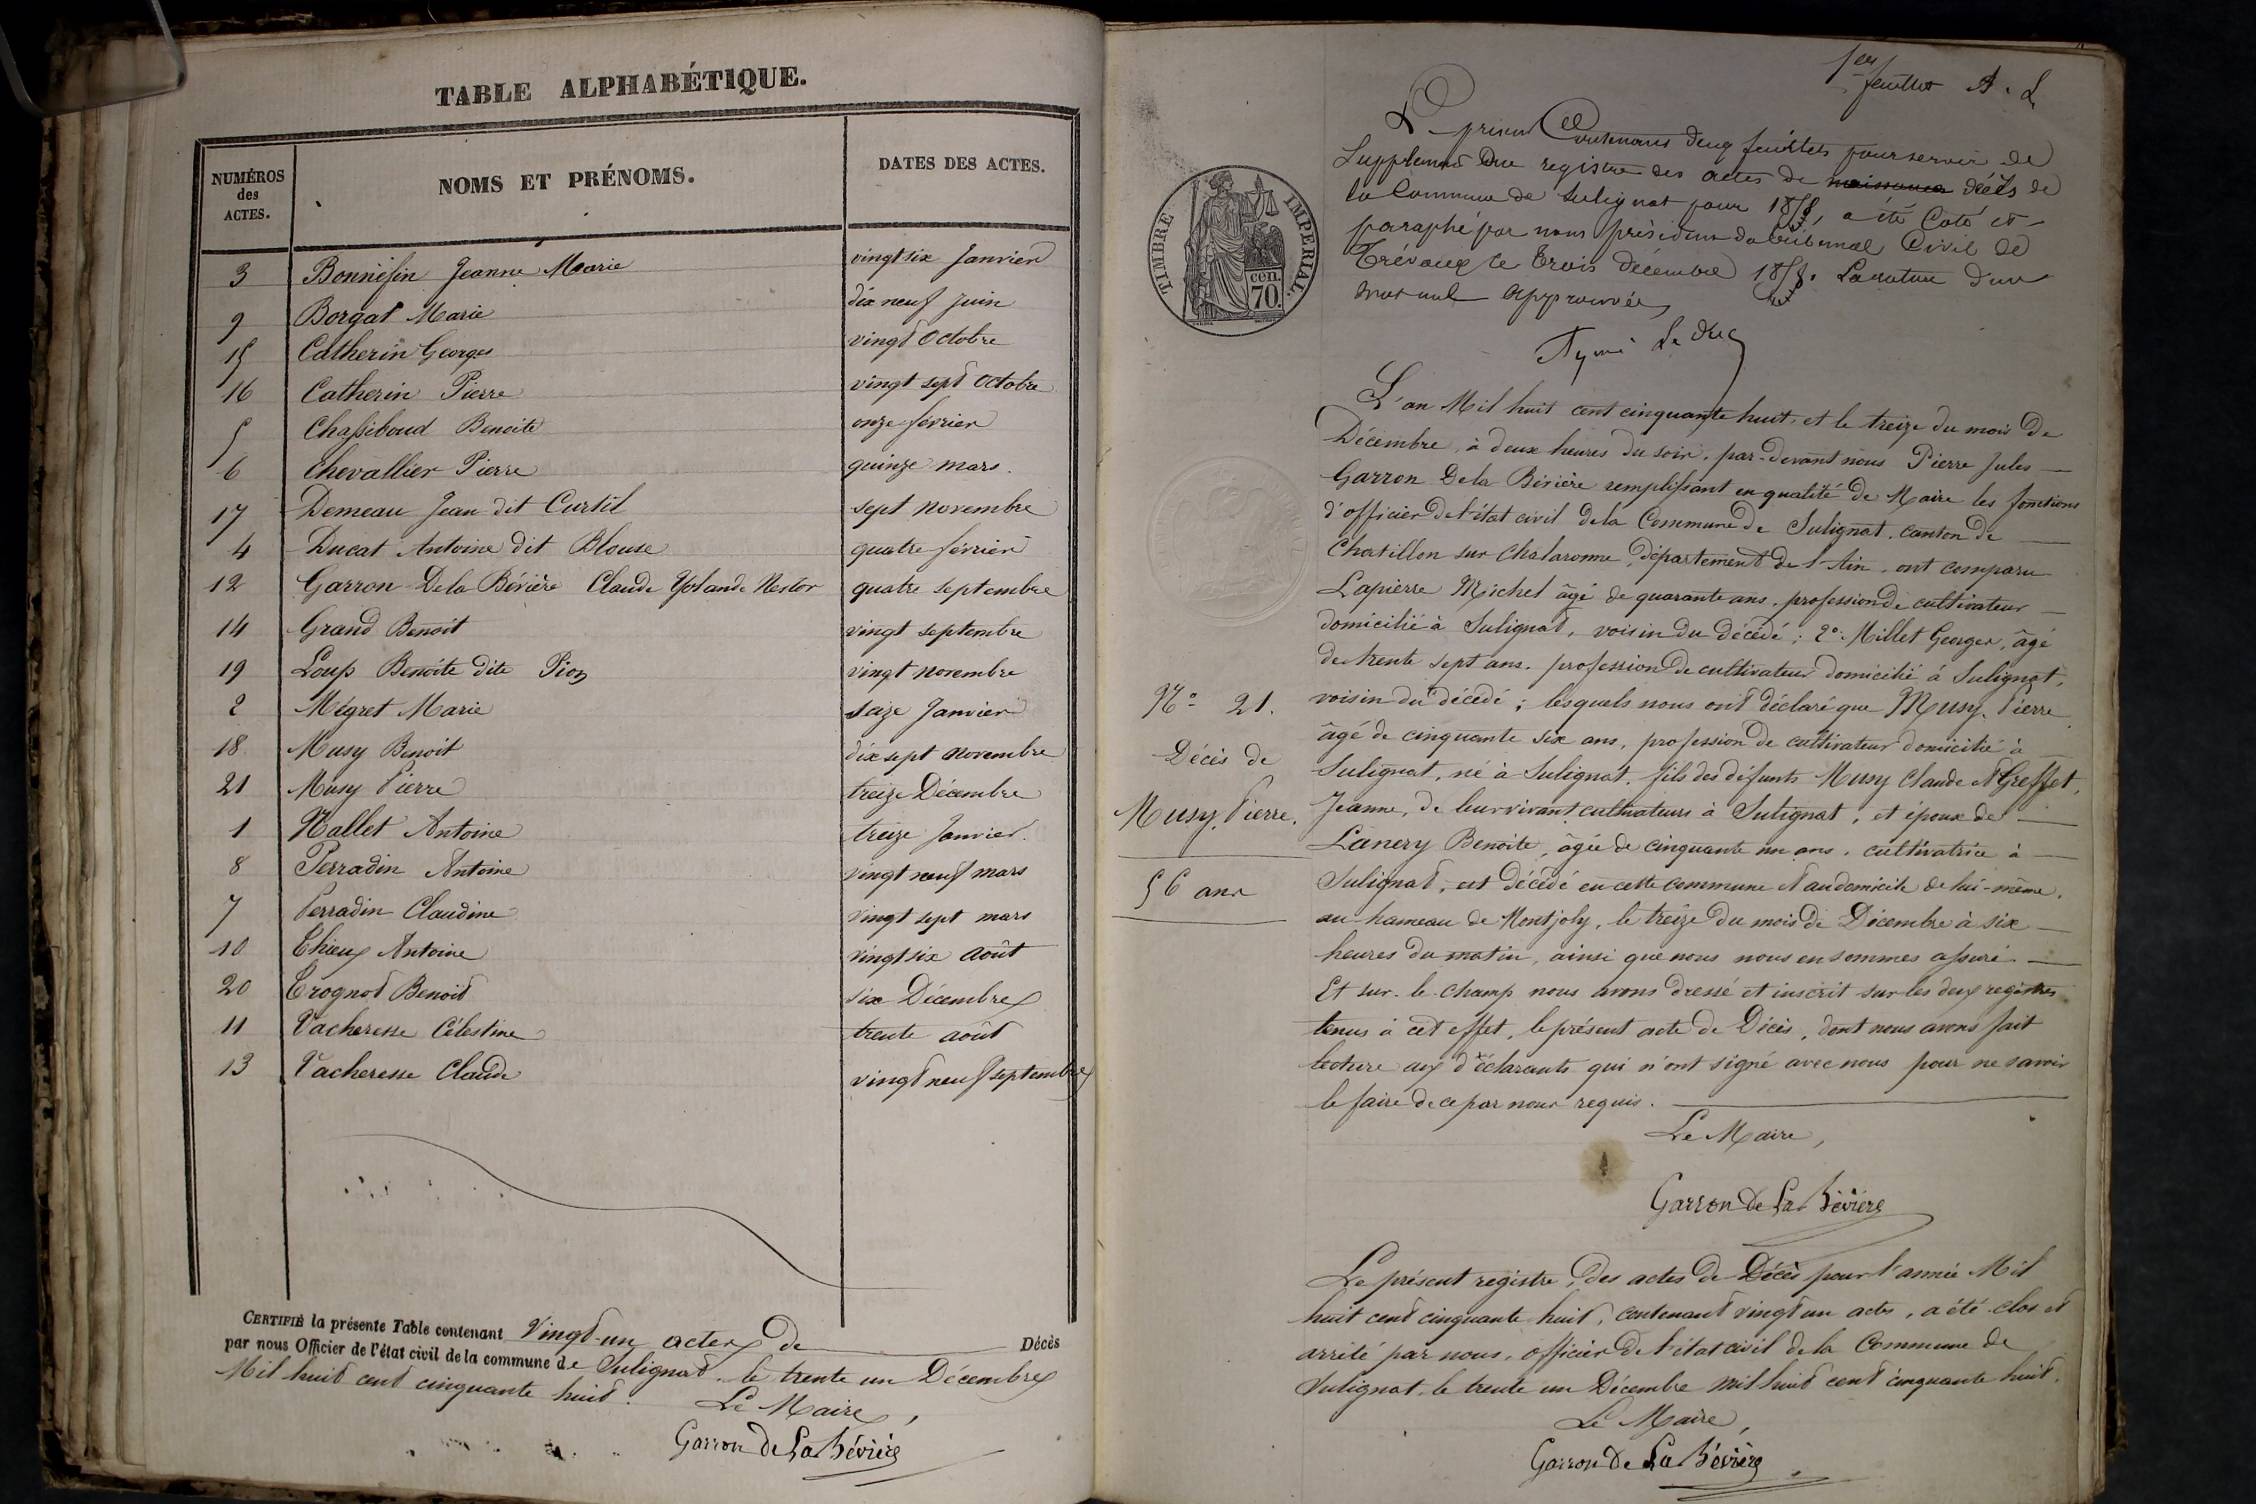 TABLE ALPHABÉTIQUE.
NUMÉROS des ACTES.
NOMS ET PRÉNOMS.
DATES DES ACTES.
3 Bonnéfin Jeanne Marie vingt six Janvier
9 Borgat Marie dix neuf Juin
15 Catherin Georges vingt Octobre
16 Catherin Pierre vingt sept Octobre
5 Chassiboud Benoite onze février
6 Chevallier Pierre quinze mars.
17 Demeau Jean dit Curtil sept novembre
4 Ducat Antoine dit Blouse quatre février
12 Garron De la Bévière Claude Yolande Nestor quatre septembre
14 Grand Benoit vingt septembre
19 Loup Benoite dite Pion vingt novembre
2 Mégret Marie seize Janvier
18 Musy Benoit dix sept novembre
21 Musy Pierre treize Décembre
1 Nallet Antoine treize Janvier.
8 Perradin Antoine vingt neuf mars
7 Perradin Claudine vingt sept mars
10 Thieux Antoine vingt six août
20 Trognot Benoit six Décembre
11 Vacheresse Célestine trente août
13 Vacheresse Claude vingt neuf septembre
CERTIFIÉ la présente Table contenant Vingt-un actes de Décès
par nous Officier de l'état civil de la commune de Sulignat. le trente un Décembre
Mil huit cent cinquante huit. Le Maire,
Garron de La Bévière
1er feuillet A. L
Le présent Contenant deux feuillets pour servir de
Supplément au registre des actes de naissance décès de
la Commune de Sulignat pour 1858, a été Coté et
paraphé par nous président du tribunal Civil de
Trévoux le trois décembre 1858. La rature d'un
mot nul approuvée
Aymé Le Duc
TIMBRE IMPERIAL.
70 cen.
L'an Mil huit cent cinquante huit, et le treize du mois de
Décembre, à deux heures du soir, par-devant nous Pierre Jules
Garron De la Bévière remplissant en qualité de Maire les fonctions
d'officier de l'état civil de la Commune de Sulignat. canton de
Chatillon sur Chalaronne, département de l'Ain, ont comparu
Lapierre Michel âgé de quarante ans, profession de cultivateur
domicilié à Sulignat, voisin du décédé; 2º. Millet Georges, âgé
de trente sept ans. profession de cultivateur domicilié à Sulignat,
voisin du décédé; lesquels nous ont déclaré que Musy. Pierre
âgé de cinquante six ans, profession de cultivateur domicilié à
Sulignat, né à Sulignat, fils des défunts Musy Claude et Greffet,
Jeanne, de leur vivant cultivateurs à Sulignat, et époux de
Lanery Benoite, âgée de cinquante un ans, cultivatrice à
Sulignat, est décédé en cette commune et au domicile de lui-même,
au hameau de Montjoly, le treize du mois de Décembre à six
heures du matin, ainsi que nous nous en sommes assuré.
Et sur-le-champ nous avons dressé et inscrit sur les deux registres
tenus à cet effet, le présent acte de Décès, dont nous avons fait
lecture aux déclarants qui n'ont signé avec nous pour ne savoir
le faire de ce par nous requis.
Nº 21.
Décès de
Musy, Pierre.
56 ans
Le Maire,
Garron de La Bévière
Le présent registre, des actes de Décès pour l'année Mil
huit cent cinquante huit, contenant vingt un actes, a été clos et
arrêté par nous, officier de l'état civil de la Commune de
Sulignat, le trente un Décembre mil huit cent cinquante huit.
Le Maire,
Garron de La Bévière